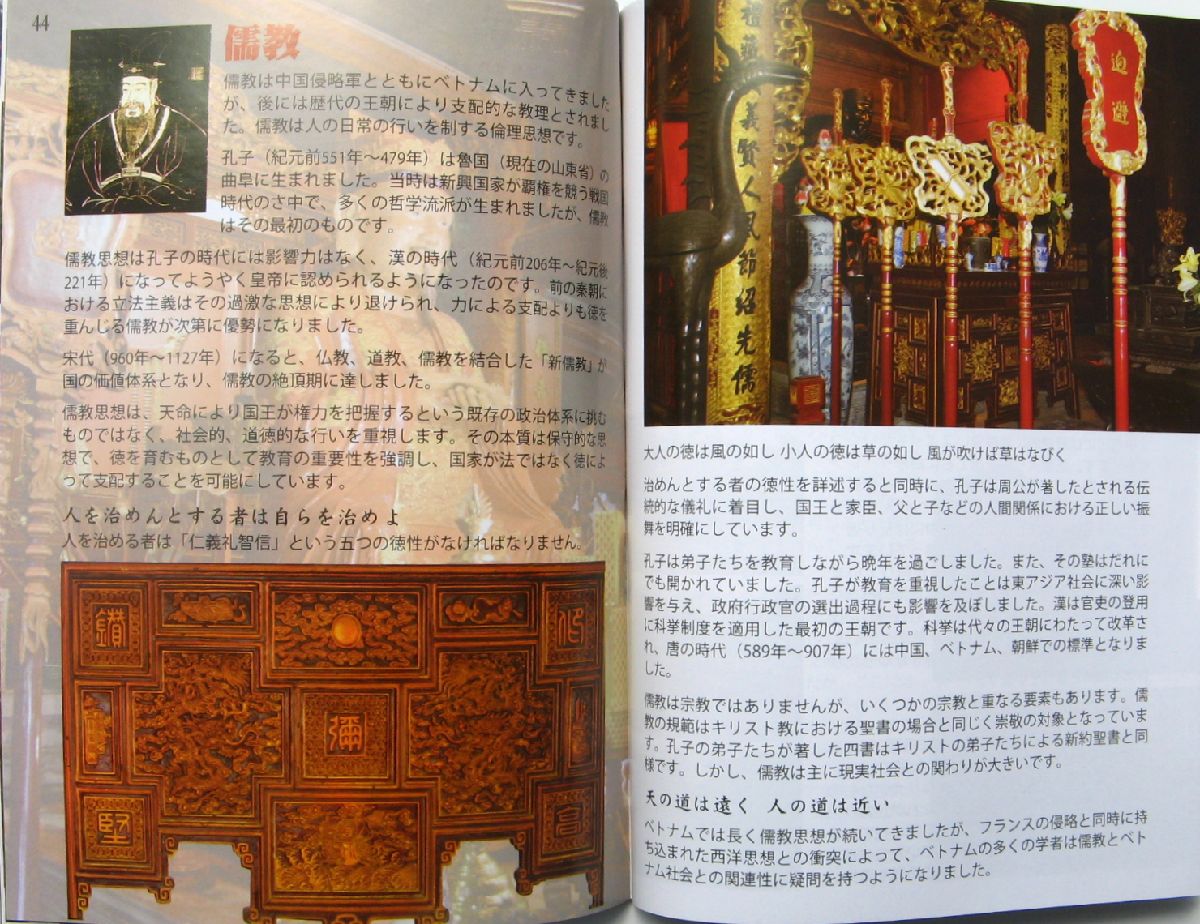 44
儒教
儒教は中国侵略軍とともにベトナムに入ってきました
が、後には歴代の王朝により支配的な教理とされまし
た。儒教は人の日常の行いを制する倫理思想です。
孔子（紀元前551年～479年）は魯国（現在の山東省）の
曲阜に生まれました。当時は新興国家が覇権を競う戦国
時代のさ中で、多くの哲学流派が生まれましたが、儒教
はその最初のものです。
儒教思想は孔子の時代には影響力はなく、漢の時代（紀元前206年～紀元後
221年）になってようやく皇帝に認められるようになったのです。前の秦朝に
おける立法主義はその過激な思想により退けられ、力による支配よりも徳を
重んじる儒教が次第に優勢になりました。
宋代（960年～1127年）になると、仏教、道教、儒教を結合した「新儒教」が
国の価値体系となり、儒教の絶頂期に達しました。
儒教思想は、天命により国王が権力を把握するという既存の政治体系に挑む
ものではなく、社会的、道徳的な行いを重視します。その本質は保守的な思
想で、徳を育むものとして教育の重要性を強調し、国家が法ではなく徳によ
って支配することを可能にしています。
人を治めんとする者は自らを治めよ
人を治める者は「仁義礼智信」という五つの徳性がなければなりません。
鑽
仰
彌
堅
高
義賢人風節紹先儒
迴避
大人の徳は風の如し 小人の徳は草の如し 風が吹けば草はなびく
治めんとする者の徳性を詳述すると同時に、孔子は周公が著したとされる伝
統的な儀礼に着目し、国王と家臣、父と子などの人間関係における正しい振
舞を明確にしています。
孔子は弟子たちを教育しながら晩年を過ごしました。また、その塾はだれに
でも開かれていました。孔子が教育を重視したことは東アジア社会に深い影
響を与え、政府行政官の選出過程にも影響を及ぼしました。漢は官吏の登用
に科挙制度を適用した最初の王朝です。科挙は代々の王朝にわたって改革さ
れ、唐の時代（589年～907年）には中国、ベトナム、朝鮮での標準となりま
した。
儒教は宗教ではありませんが、いくつかの宗教と重なる要素もあります。儒
教の規範はキリスト教における聖書の場合と同じく崇敬の対象となっていま
す。孔子の弟子たちが著した四書はキリストの弟子たちによる新約聖書と同
様です。しかし、儒教は主に現実社会との関わりが大きいです。
天の道は遠く 人の道は近い
ベトナムでは長く儒教思想が続いてきましたが、フランスの侵略と同時に持
ち込まれた西洋思想との衝突によって、ベトナムの多くの学者は儒教とベト
ナム社会との関連性に疑問を持つようになりました。